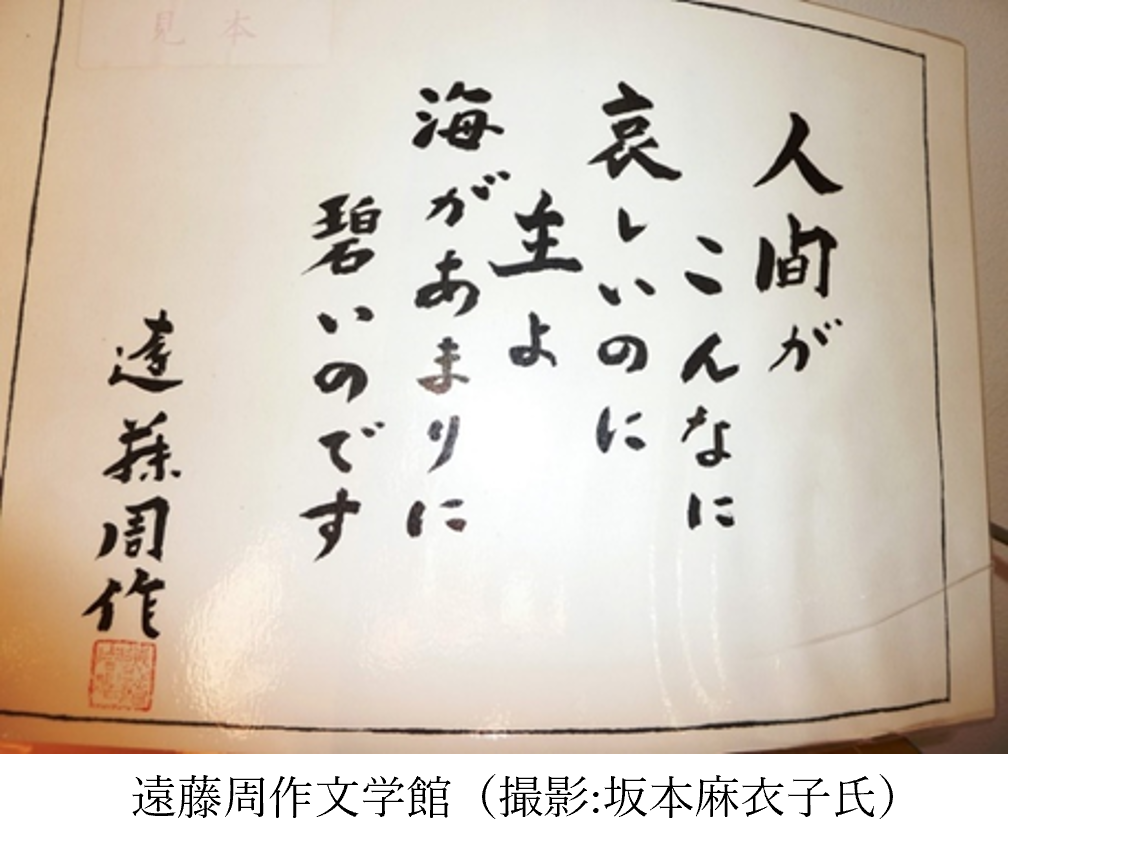 見本
人間が
こんなに
哀しいのに
主よ
海があまりに
碧いのです
遠藤周作
遠藤周作文学館（撮影:坂本麻衣子氏）